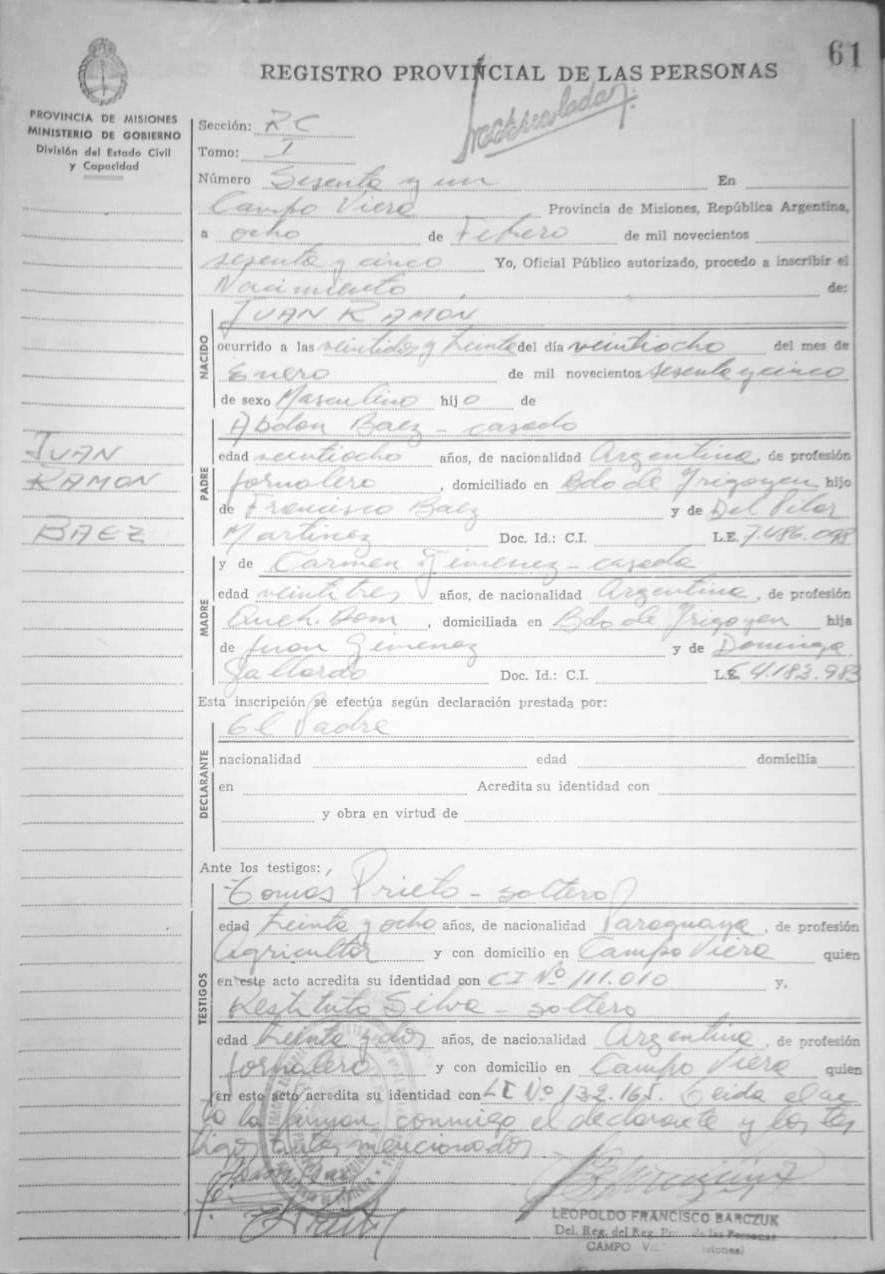 61
REGISTRO PROVINCIAL DE LAS PERSONAS
PROVINCIA DE MISIONES
MINISTERIO DE GOBIERNO
División del Estado Civil
y Capacidad
Sección: RC
Tomo: I
Número Sesenta y un En
Campo Viera Provincia de Misiones, República Argentina,
a ocho de Febrero de mil novecientos
sesenta y cinco Yo, Oficial Público autorizado, procedo a inscribir el
Nacimiento de:
NACIDO
JUAN RAMON
ocurrido a las veintidos y treinta del día veintiocho del mes de
Enero de mil novecientos sesenta y cinco
de sexo Masculino hijo de
JUAN
RAMON
BAEZ
PADRE
Abdon Baez - casado
edad veintiocho años, de nacionalidad Argentina, de profesión
jornalero, domiciliado en Bdo de Irigoyen hijo
de Francisco Baez y de Del Pilar
Martinez Doc. Id.: C.I. L.E. 7.486.098
MADRE
y de Carmen Gimenez - casada
edad veintitres años, de nacionalidad Argentina, de profesión
Queh. Dom, domiciliada en Bdo de Irigoyen hija
de Juan Gimenez y de Dominga
Gallardo Doc. Id.: C.I. 4.183.983
Esta inscripción se efectúa según declaración prestada por:
El Padre
DECLARANTE
nacionalidad edad domicilia
en Acredita su identidad con
y obra en virtud de
Ante los testigos:
TESTIGOS
Tomas Prieto - soltero
edad treinta y ocho años, de nacionalidad Paraguaya, de profesión
Agricultor y con domicilio en Campo Viera quien
en este acto acredita su identidad con CI Nº 111.010 y,
Restituto Silva - soltero
edad treinta y dos años, de nacionalidad Argentina, de profesión
jornalero y con domicilio en Campo Viera quien
en este acto acredita su identidad con LE Nº 132.165. Leida el ac
ta la firman conmigo el declarante y los tes
tigos antes mencionados
LEOPOLDO FRANCISCO BARCZUK
Del. Reg. del Reg. de las Personas
CAMPO